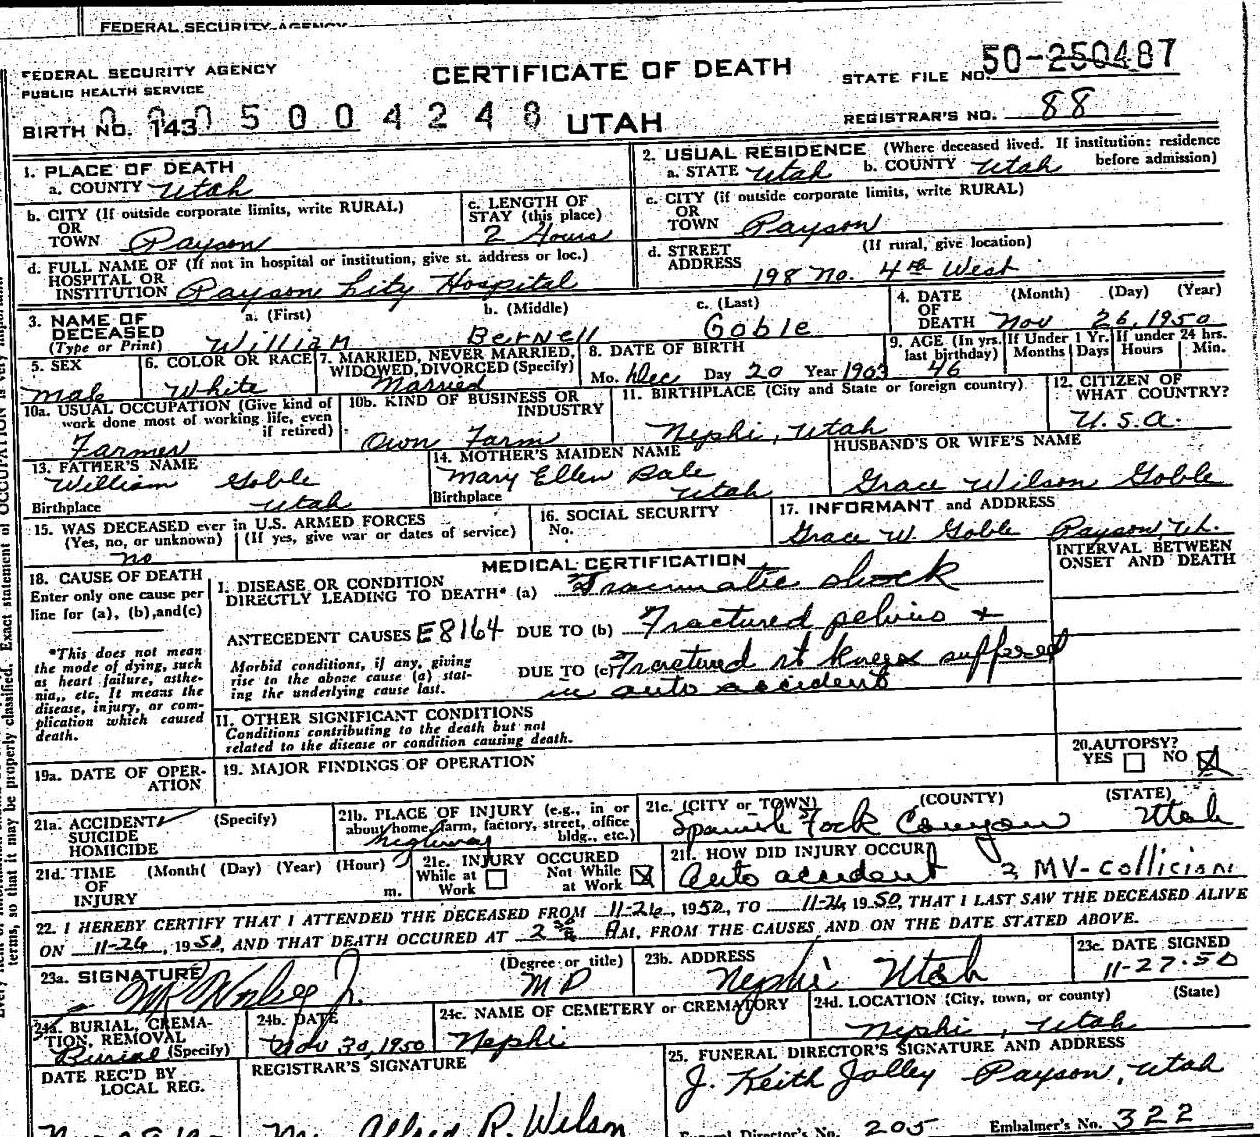 FEDERAL SECURITY AGENCY
FEDERAL SECURITY AGENCY
PUBLIC HEALTH SERVICE
CERTIFICATE OF DEATH
STATE FILE NO. 50-250487
BIRTH NO. 143
5004248
UTAH
REGISTRAR'S NO. 88
1. PLACE OF DEATH
a. COUNTY Utah
2. USUAL RESIDENCE (Where deceased lived. If institution: residence before admission)
a. STATE Utah b. COUNTY Utah
b. CITY (If outside corporate limits, write RURAL)
OR
TOWN Payson
c. LENGTH OF
STAY (this place)
2 Hours
c. CITY (if outside corporate limits, write RURAL)
OR
TOWN Payson
d. FULL NAME OF (If not in hospital or institution, give st. address or loc.)
HOSPITAL OR
INSTITUTION Payson City Hospital
d. STREET (If rural, give location)
ADDRESS 198 No. 4th West
3. NAME OF
DECEASED
(Type or Print)
a. (First) William
b. (Middle) Bernell
c. (Last) Goble
4. DATE (Month) (Day) (Year)
OF
DEATH Nov 26, 1950
5. SEX
Male
6. COLOR OR RACE
White
7. MARRIED, NEVER MARRIED,
WIDOWED, DIVORCED (Specify)
Married
8. DATE OF BIRTH
Mo. Dec Day 20 Year 1903
9. AGE (In yrs. last birthday)
46
If Under 1 Yr.
Months Days
If under 24 hrs.
Hours Min.
10a. USUAL OCCUPATION (Give kind of
work done most of working life, even
if retired)
Farmer
10b. KIND OF BUSINESS OR
INDUSTRY
Own Farm
11. BIRTHPLACE (City and State or foreign country)
Nephi, Utah
12. CITIZEN OF
WHAT COUNTRY?
U.S.A.
13. FATHER'S NAME
William Goble
Birthplace Utah
14. MOTHER'S MAIDEN NAME
Mary Ellen Bale
Birthplace Utah
HUSBAND'S OR WIFE'S NAME
Grace Wilson Goble
15. WAS DECEASED ever in U.S. ARMED FORCES
(Yes, no, or unknown) (If yes, give war or dates of service)
no
16. SOCIAL SECURITY
No.
17. INFORMANT and ADDRESS
Grace W. Goble Payson, Ut.
18. CAUSE OF DEATH
Enter only one cause per
line for (a), (b), and (c)
*This does not mean
the mode of dying, such
as heart failure, asthe-
nia,, etc. It means the
disease, injury, or com-
plication which caused
death.
MEDICAL CERTIFICATION
INTERVAL BETWEEN
ONSET AND DEATH
I. DISEASE OR CONDITION
DIRECTLY LEADING TO DEATH* (a) Traumatic shock
ANTECEDENT CAUSES E8164 DUE TO (b) Fractured pelvis +
Morbid conditions, if any, giving
rise to the above cause (a) stat-
ing the underlying cause last.
DUE TO (c) Fractured rt knee suffered
in auto accident
II. OTHER SIGNIFICANT CONDITIONS
Conditions contributing to the death but not
related to the disease or condition causing death.
19a. DATE OF OPER-
ATION
19. MAJOR FINDINGS OF OPERATION
20. AUTOPSY?
YES NO
21a. ACCIDENT (Specify)
SUICIDE
HOMICIDE
21b. PLACE OF INJURY (e.g., in or
about home, farm, factory, street, office
bldg., etc.)
highway
21c. (CITY or TOWN) (COUNTY) (STATE)
Spanish Fork Canyon Utah
21d. TIME (Month) (Day) (Year) (Hour)
OF
INJURY m.
21e. INJURY OCCURED
While at Work
Not While at Work
21f. HOW DID INJURY OCCUR
Auto accident 2 MV-collicion
22. I HEREBY CERTIFY THAT I ATTENDED THE DECEASED FROM 11-26, 1950, TO 11-26, 1950, THAT I LAST SAW THE DECEASED ALIVE
ON 11-26, 1950, AND THAT DEATH OCCURED AT 2 AM, FROM THE CAUSES AND ON THE DATE STATED ABOVE.
23a. SIGNATURE (Degree or title)
MD
23b. ADDRESS
Nephi Utah
23c. DATE SIGNED
11-27-50
24a. BURIAL, CREMA-
TION, REMOVAL
(Specify) Burial
24b. DATE
Nov 30, 1950
24c. NAME OF CEMETERY or CREMATORY
Nephi
24d. LOCATION (City, town, or county) (State)
Nephi, Utah
DATE REC'D BY
LOCAL REG.
REGISTRAR'S SIGNATURE
Alfred R. Wilson
25. FUNERAL DIRECTOR'S SIGNATURE AND ADDRESS
J. Keith Jolley Payson, Utah
Funeral Director's No. 205 Embalmer's No. 322